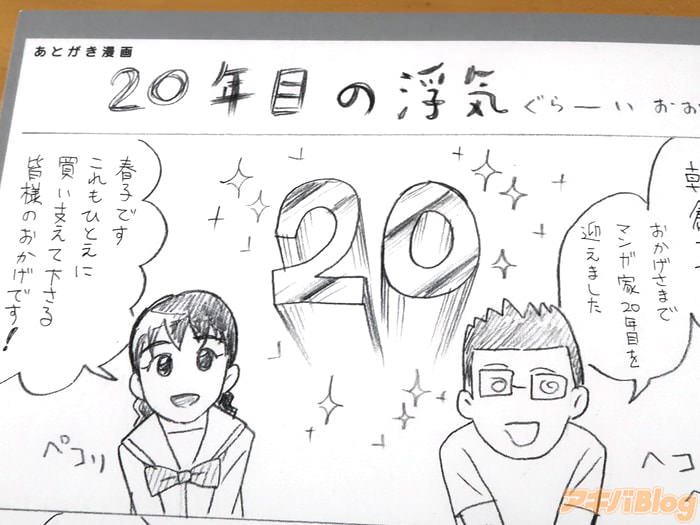 あとがき漫画
20年目の浮気ぐらーい おお
おかげさまで
マンガ家20年目を
迎えました
20
春子です
これもひとえに
買い支えて下さる
皆様のおかげです!
ペコリ
ペコ
アキバBlog